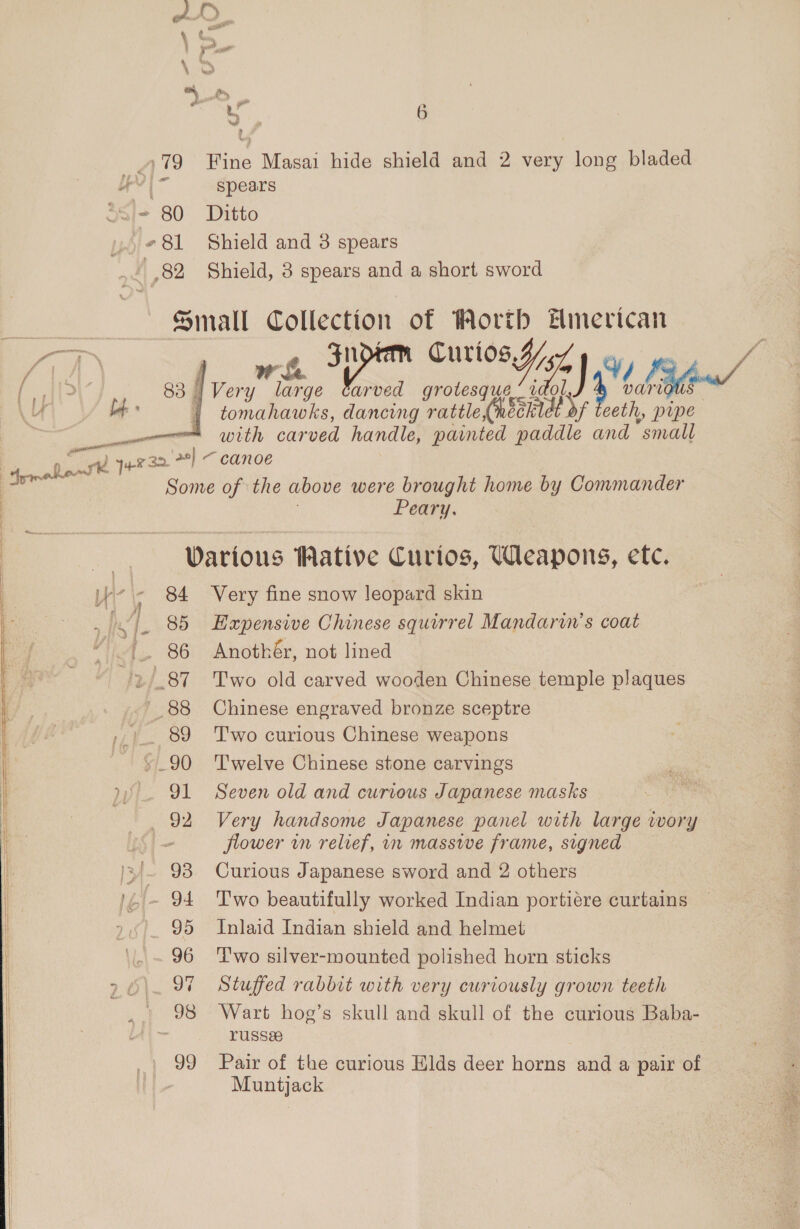 6
79 Fine Masai hide shield and 2 very long bladed
spears
80 Ditto
81 Shield and 3 spears
82 Shield, 3 spears and a short sword
Small Collection of North American
Indian Curios.
83 Very large carved grotesque idol, 4 various
tomahawks, dancing rattle, necklet of teeth, pipe
with carved handle, painted paddle and small
canoe
Some of the above were brought home by Commander
Peary.
Various Native Curios, Weapons, etc.
84 Very fine snow leopard skin
85 Expensive Chinese squirrel Mandarin's coat
86 Another, not lined
87 Two old carved wooden Chinese temple plaques
88 Chinese engraved bronze sceptre
89 Two curious Chinese weapons
90 Twelve Chinese stone carvings
91 Seven old and curious Japanese masks
92 Very handsome Japanese panel with large ivory
flower in relief, in massive frame, signed
93 Curious Japanese sword and 2 others
94 Two beautifully worked Indian portière curtains
95 Inlaid Indian shield and helmet
96 Two silver-mounted polished horn sticks
97 Stuffed rabbit with very curiously grown teeth
98 Wart hog's skull and skull of the curious Baba-
russæ
99 Pair of the curious Elds deer horns and a pair of
Muntjack